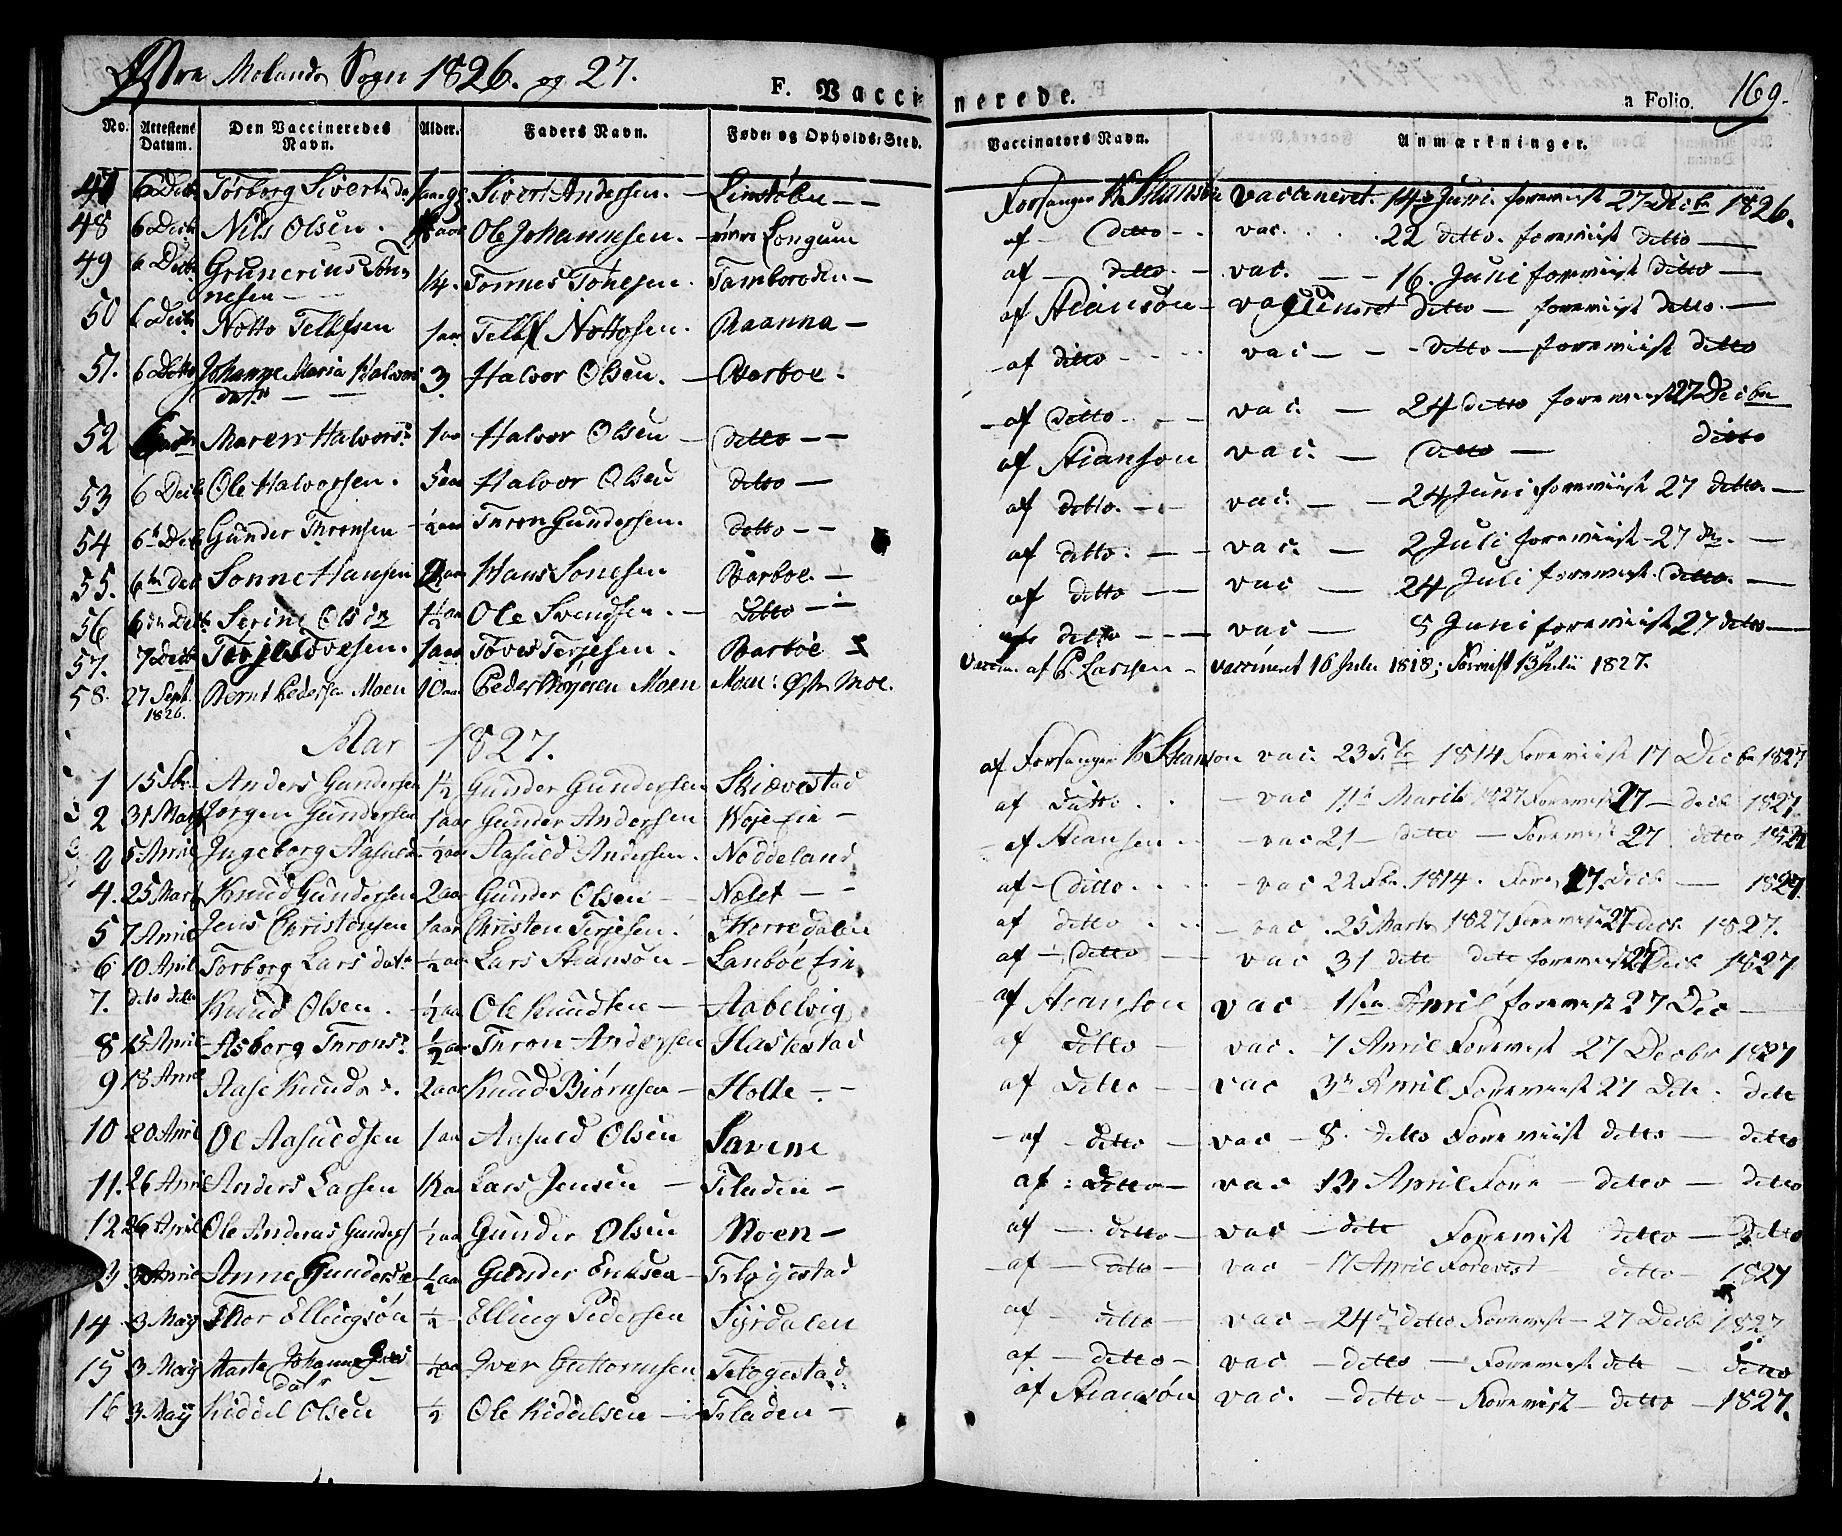 Østre Molands Sogn 1826. og 27.
F. Vaccinerede.
a Folio. 169.
No. Attestens Datum. Den Vaccineredes Navn. Alder. Faders Navn. Føde- og Opholds-Sted. Vaccinators Navn. Anmærkninger.
47 6 Decb Torborg Siverts da Sivert Andersen. Forsanger vaccineret. 14 Juni. foreviist 27 Decb 1826.
48 6 Decb Nils Olsen. Ole Johannesen. Longum af ditto vac. 22 ditto. foreviist ditto
49 6 Decb Grunerius Tønnesen 1/4. Tønnes Tønesen. af ditto vac. 16. Juni foreviist ditto
50 6 Decb Notto Tellefsen 1 aar Tellef Nottosen. Raanna af vaccineret ditto foreviist ditto
51. 6 Decb Johanne Maria Halvors datr 3. Halvor Olsen. Barboe. af ditto vac ditto foreviist ditto
52 Maren Halvors 1 aar Halvor Olsen ditto af ditto vac. 24 ditto foreviist 27 Decbr
53 6 Decb Ole Halvorsen. 5 aar Halvor Olsen ditto af vac. ditto ditto
54 6 Decb Gunder Thronsen 1/2 aar Tron Gundersen. ditto af ditto. vac. 24 Juni foreviist 27 ditto.
55. 6 Sonne Hansen Hans Sonesen Barboe. af ditto. vac. 2 Juli foreviist 27
56 6 Serine Olsen Ole Svendsen. Ditto af ditto vac 24 Juli foreviist. ditto.
57. 7 Decb Terjes Tovesen. 1 aar Toves Terjesen. Barboe af ditto vac 5 Juni foreviist 27 ditto
58. 27 Sept. 1826. Bernt Pedersen Moen 10 aar Peder Moen Moen: Østr Moe. Vaccin. af P. Larssen vaccineret 16 Julii 1818; Foreviist 13 Julii 1827.
Aar 1827.
1 Anders Gundersen 1 1/2 Gunder Gundersen Skiævestad af Forsanger vac. 23 1814 Foreviist 17 Decbr 1827
2 31 Mart Jorgen Gundersen 1 aar Gunder Andersen af Ditto vac 11 Martii 1827 Foreviist 27 decb 1827.
5 April Ingeborg Aasulds 1/2 aar Aasuld Andersen. Noddeland af vac 21 ditto Foreviist 27 ditto 1827
4. 25 Mart Knud Gundersen 2 aar Gunder Olsen Nelet af ditto vac 22 Fbr. 1814. Forev 27. Decb 1827.
5 7 April Jens Christensen 1 aar Christen Terjesen. Herredalen af ditto vac. 25 Marts 1827 Foreviist 27 decb 1827.
6 10 April Torborg Lars datr 1/2 aar Lars af ditto vac 31 dett dett foreviist 27 Decb 1827
7. dito dito Knud Olsen. 1/2 aar Ole Knudsen Aabelvig af vac 1ste April foreviist 27 Dec
8 15 April Asborg Throns 1/2 aar Tron Andersen Hastestad af Ditto vac. 7 April Foreviist 27 Decbr 1827
9 18 April Aase Knuds 2 aar Knud Biørnsen Holte af Ditto vac 3 April Foreviist 27 Dett. dett
10 20 April Ol Aasuldsen 1 aar Aasuld Olsen Savene af ditto vac 8. ditto Foreviist ditto ditto
11. 26 April Anders Larsen Lars Jensen Fladen af ditto vac 12 April Forev ditto ditto
12 26 April Ole Andreas Gunders 1/2 aar Gunder Olsen Moen af ditto vac dett Foreviist ditto Ditto
3 April Anne Gunders 1/2 aar Gunder Eriksen Flogestad af ditto vac 17 April Foreviist ditto 1827
14 3 May Thor Ellingsøn 1/2 Elling Pedersen Fyrdalen af ditto vac 24 ditto Foreviist 27 Decb 1827
15 3 May Marte Johanne datr 1/2 aar Iver Guttormsen Flogestad af ditto vac ditto Foreviist dett ditto
16 3 May Kiddel Olsen 1/2 Ole Kiddelsen Fladen af vac. ditto Foreviist ditto 1827.